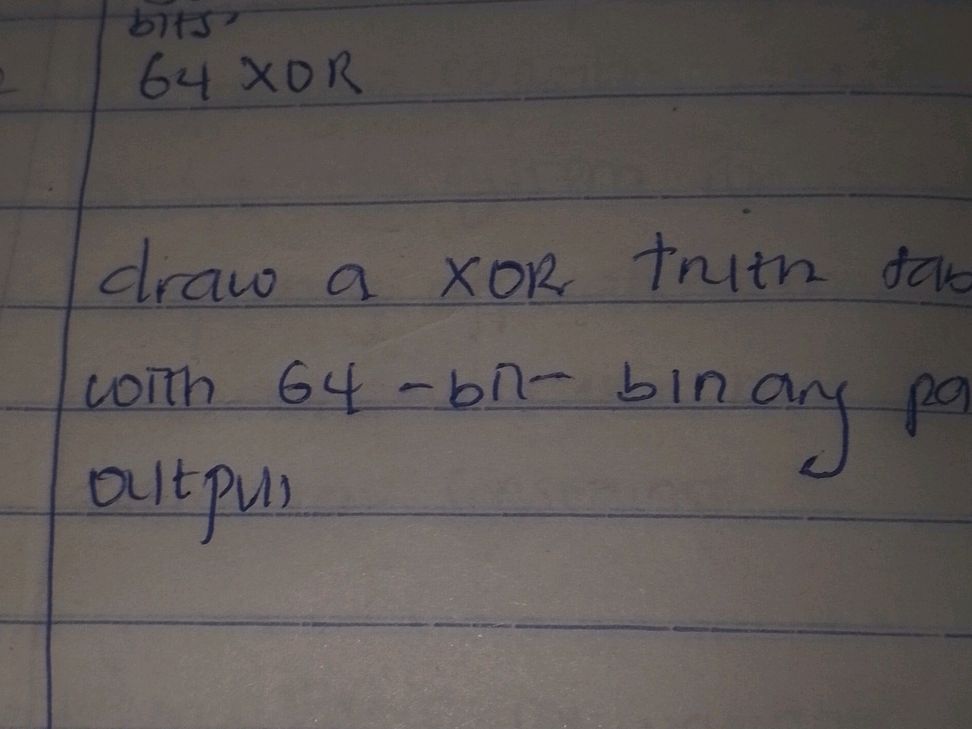 bits,
64 XOR
draw a XOR truth tab
with 64-bit- binary pa
output